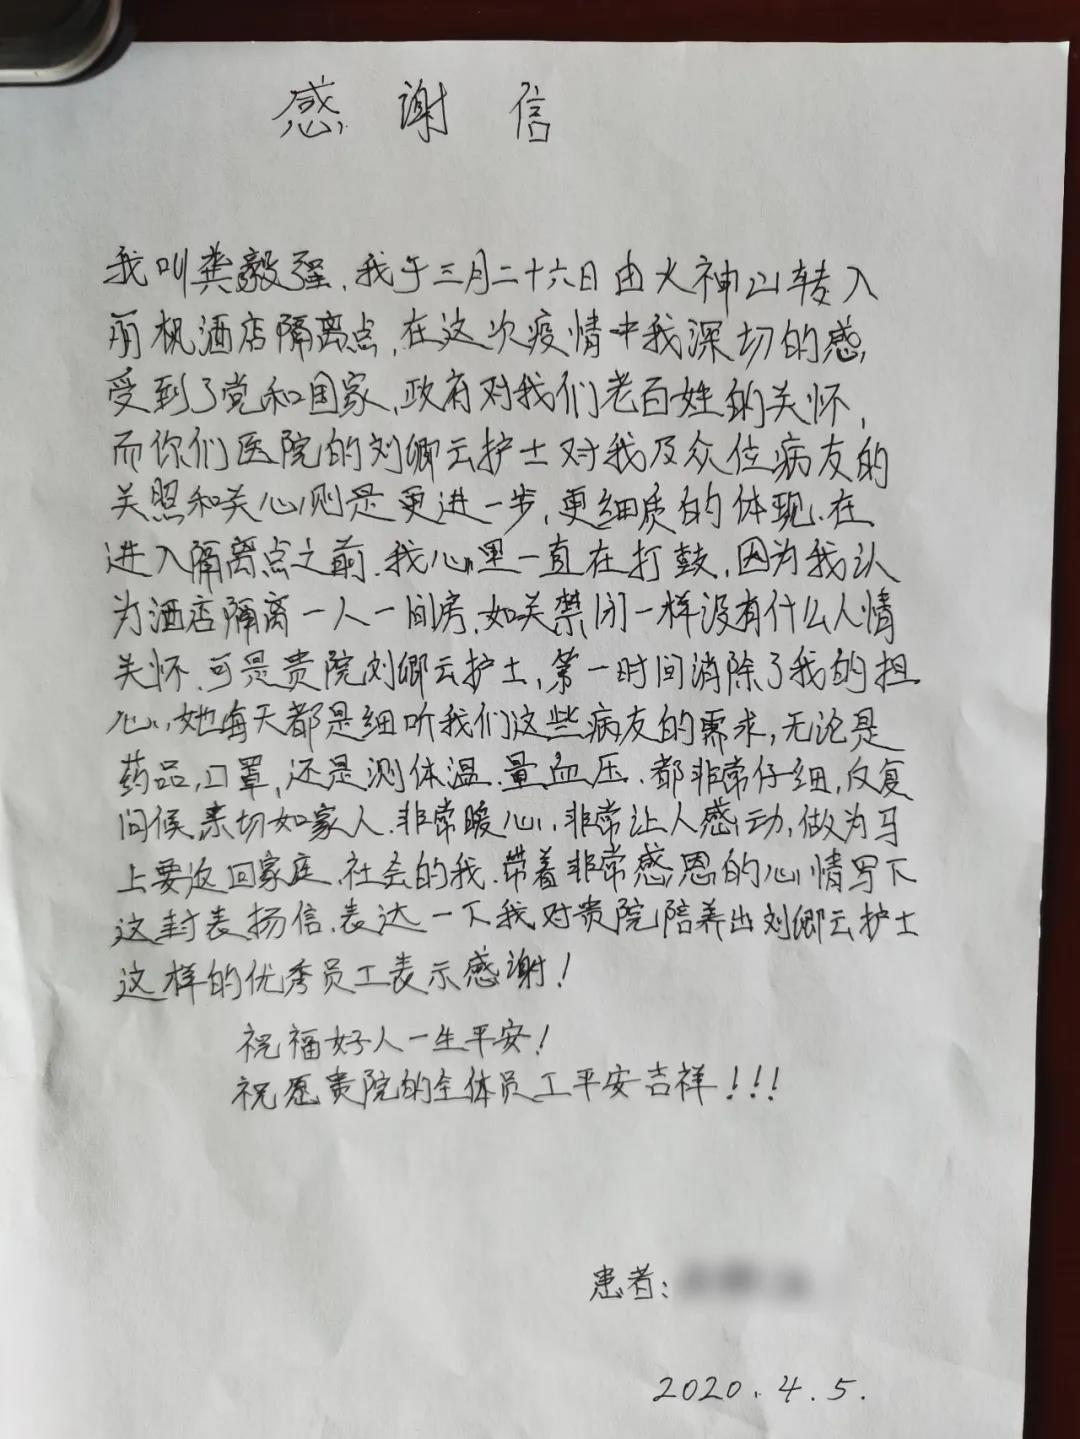 感谢信
我叫龚毅强，我于三月二十六日由火神山转入
丽枫酒店隔离点，在这次疫情中我深切的感
受到了党和国家、政府对我们老百姓的关怀，
而你们医院的刘卿云护士对我及众位病友的
关照和关心则是更进一步，更细质的体现。在
进入隔离点之前，我心里一直在打鼓，因为我认
为酒店隔离一人一间房，如关禁闭一样没有什么人情
关怀，可是贵院刘卿云护士，第一时间消除了我的担
心，她每天都是细听我们这些病友的需求，无论是
药品，口罩，还是测体温、量血压，都非常仔细，反复
问候，亲切如家人，非常暖心，非常让人感动，做为马
上要返回家庭、社会的我，带着非常感恩的心情写下
这封表扬信，表达一下我对贵院陪养出刘卿云护士
这样的优秀员工表示感谢！
祝福好人一生平安！
祝愿贵院的全体员工平安吉祥！！！
患者：
2020.4.5.